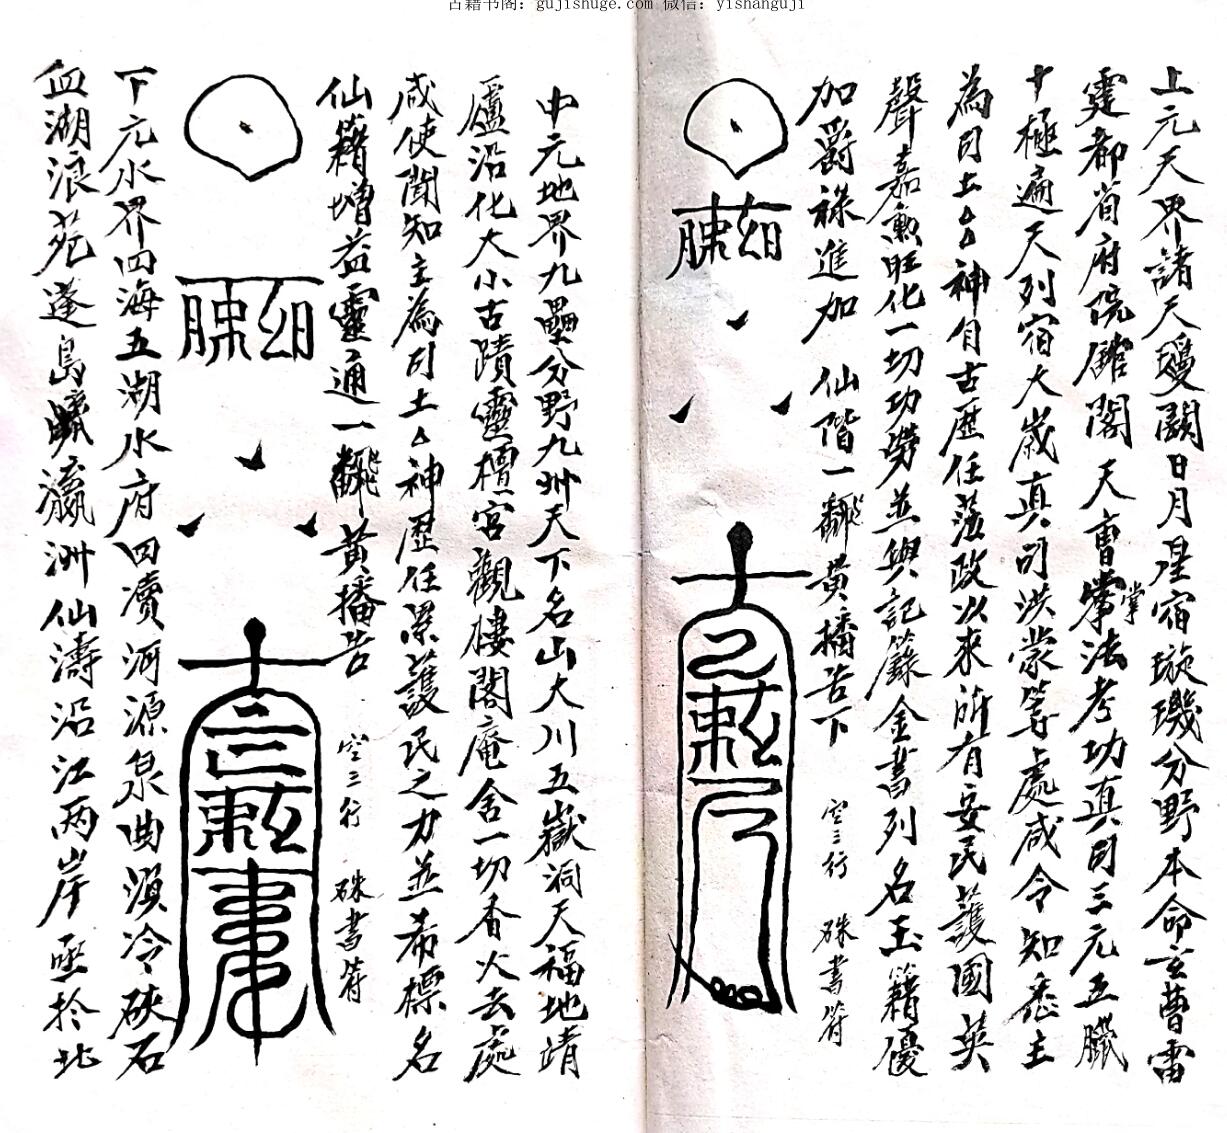 古籍书阁：gujishuge.com 微信：yishanguji
上元天界諸天瓊闕日月星宿璇璣分野本命玄曹雷
霆都省府院館閣天曹掌法考功真司三元五臘
掌
十極遍天列宿大歲真司洪蒙等處咸令知悉主
為司土厶神自古歷任蒞政以來所有安民護國英
聲嘉勲旺化一切功勞並與記籙金書列名玉籍優
加爵祿進加 仙階一翻黃播告下
空三行 硃書符
中元地界九壘分野九州天下名山大川五嶽洞天福地靖
廬沿化大小古蹟靈壇宮觀樓閣庵舍一切香火去處
咸使聞知主為司土厶神歷任深護民之力並希標名
仙籍增益靈通一翻黃播告
空三行 硃書符
下元水界四海五湖水府四瀆河源泉曲溟泠硤石
血湖浪苑蓬島瀛洲仙濤沿江两岸亟於北